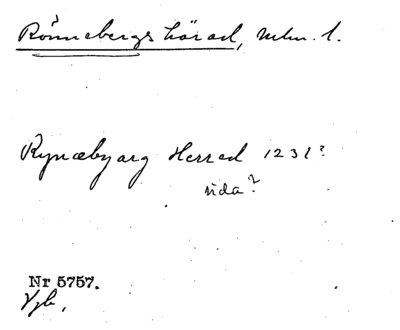 Rönnebergs härad, Mlm. l.
Rynæbyarg Herred 1231?
sida?
Nr 5757.